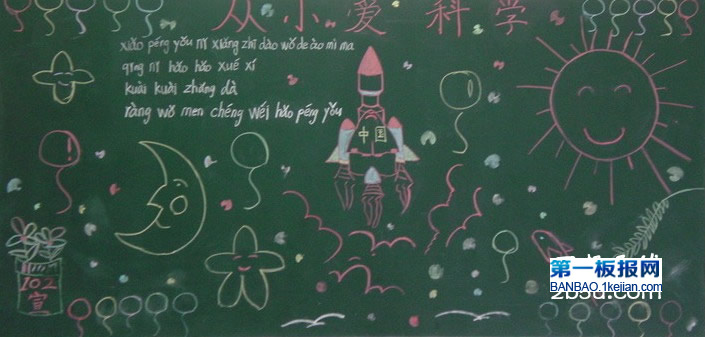 从小爱科学
xiǎo péng yǒu nǐ xiǎng zhī dào wǒ de ào mì ma
qǐng nǐ hǎo hǎo xué xí
kuài kuài zhǎng dà
ràng wǒ men chéng wéi hǎo péng yǒu
中国
102
宣
第一板报网
BANBAO.1kejian.com